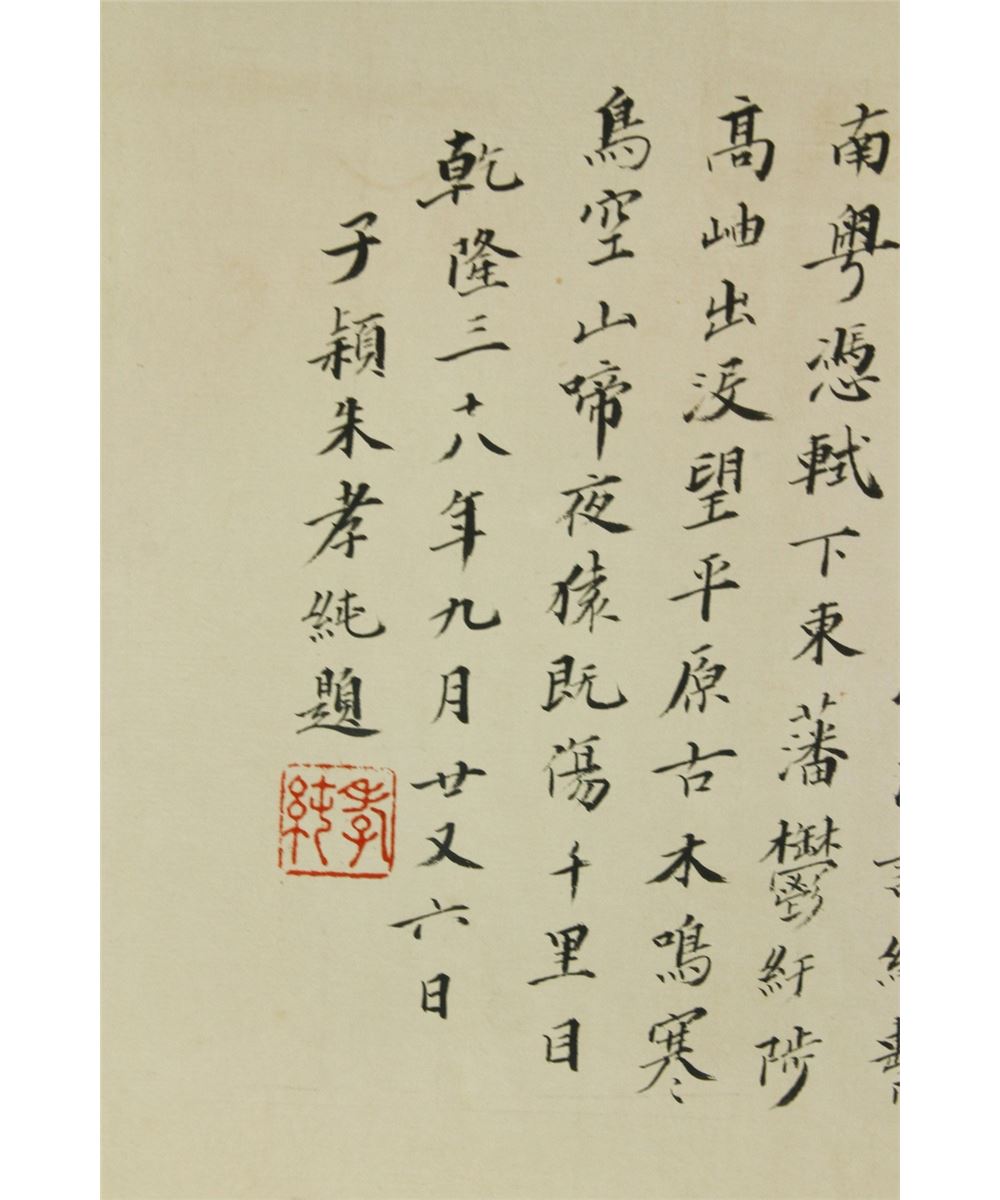 南粤憑軾下東藩鬱紆陟
高岫出没望平原古木鳴寒
鳥空山啼夜猿既傷千里目
乾隆三十八年九月廿又六日
子穎朱孝純題
孝純